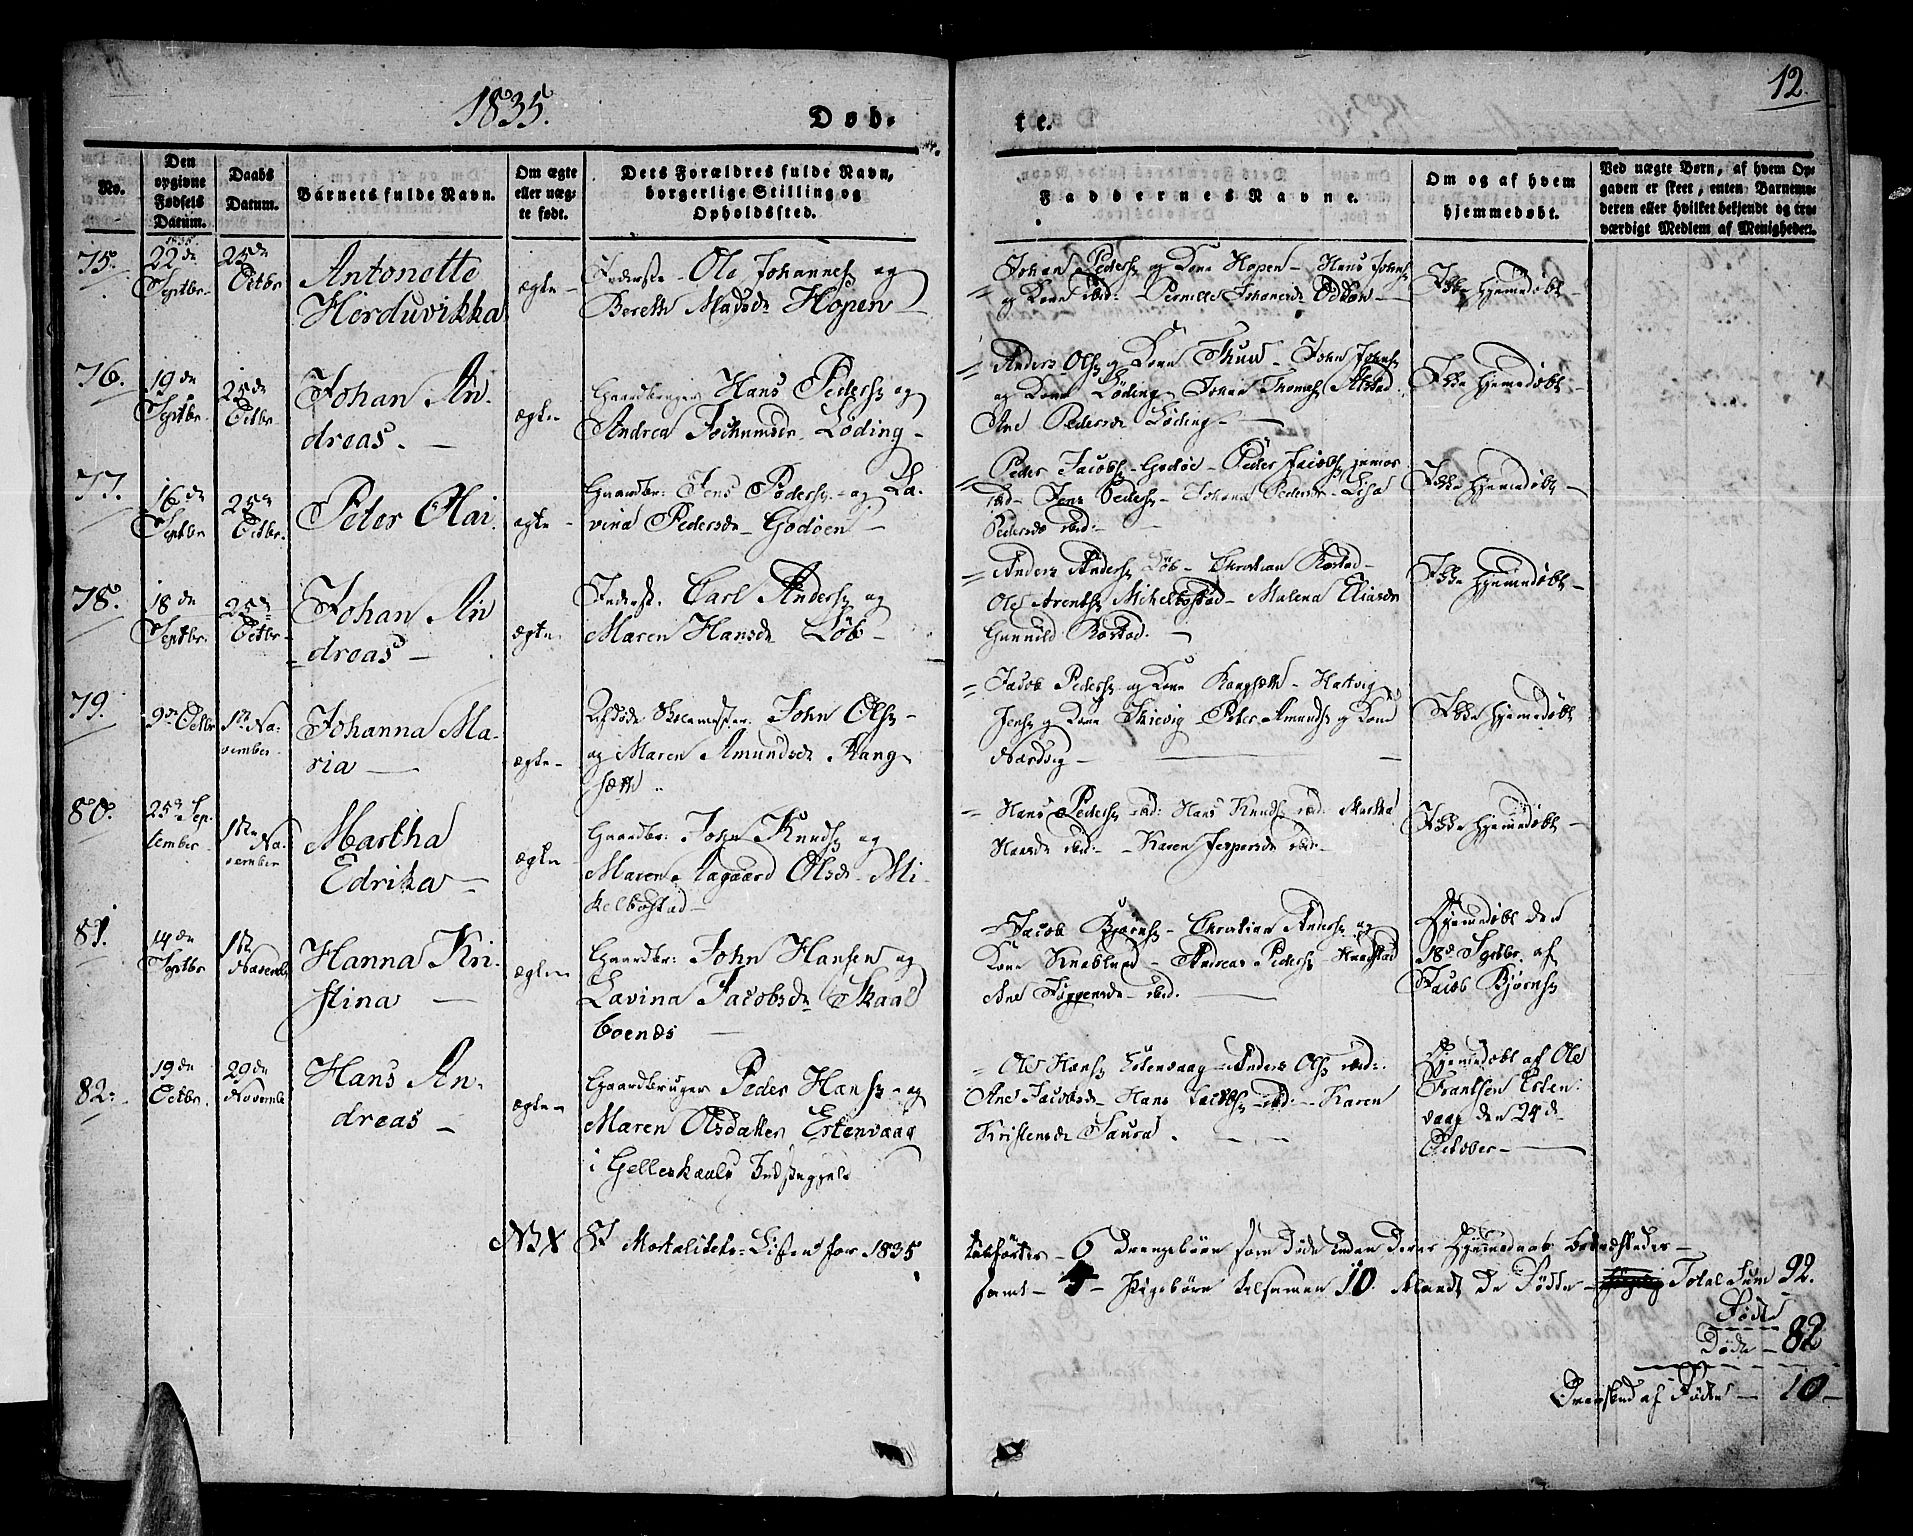 1835.
Døb-
te.
12.
No.
Den
opgivne
Fødsels
Datum.
Daabs
Datum.
Barnets fulde Navn.
Om ægte
eller uæg-
te født.
Dets Forældres fulde Navn,
borgerlige Stilling og
Opholdssted.
Faddernes Navne.
Om og af hvem
hjemmedøbt.
Ved uægte Børn, af hvem Op-
gaven er skeet, enten Barnemo-
deren eller hvilket bekjendt og tro-
værdigt Medlem af Menigheden.
75.
1835
22de
Septbr.
25de
Octbr
Antonette
Horduvikka
ægte
Inderste Ole Johannes og
Bereth Madsdr Hopen
Johan Peders og Kone Hopen - Hans Johns
og Kone ibd: Pernille Johansdr
Ikke Hjemmedøbt -
76.
19de
Septbr.
25de
Octbr
Johan An-
dreas. -
ægte
Gaardbruger Hans Peders og
Andrea Jochumsdr Løding -
Anders Ols og Kone Thuv - John Johns
og Kone Løding - Johan Thomes Alstad
Ane Pedersdr Løding -
Ikke Hjemmedøbt -
77.
16de
Septbr
25de
Octbr.
Peter Olai.
ægte -
Gaardbr: Jens Peders - og La-
vina Pedersdr - Godøen -
Peder Jacobs - Godøe - Peder Jacobs junior
ibd - Jens Peders - Johana Pedersdr - Lisa
Pedersdr ibd: -
Ikke Hjemmedøbt -
78.
18de
Septbr.
25de
Octbr -
Johan An
dreas -
ægte.
Inderst. Carl Anders og
Maren Hansdr Løb -
Anders Anders Løb - Christian Rostad -
Ole Arents Mikelbostad - Malena Eliasdr
Gunnild Rostad. -
Ikke Hjemmedøbt -
79.
9de Octbr
1ste No-
vember -
Johanna Ma-
ria -
ægte -
Afdøde Skolemester John Ols -
og Maren Amundsdr Rang-
sæth
Jacob Peders og Kone Rangsæth - Hartvig
Jens og Kone - Peter Amunds og Kone
Ikke Hjemmedøbt
80.
25de Sep-
tember
1ste No-
vember
Martha
Edrika -
ægte
Gaardbr: John Knuds og
Maren Aagaard Olsdr Mi-
kelbostad -
Hans Peders ibd: Hans Knuds ibd. Martha
Hansdr ibd: - Karen Jespersdr ibd -
Ikke Hjemmedøbt -
81.
14de
Septbr
1ste
Novembr
Hanna Kri-
stina -
ægte -
Gaardbr: John Hansen og
Lavina Jacobsdr Skaal
boenes -
Jacob Bjørns - Christian Anders og
Kone Knablund - Andreas Peders
Ane ibd.
Hjemmedøbt den
18de Septbr. af
Jacob Bjørns
82.
19de
Octbr.
29de
Novembr
Hans An-
dreas -
ægte -
Gaardbruger Peder Hans - og
Maren Olsdatter Ertenvaag
i Gelleskaals
Ole Hans Ertenvaag - Anders Ols ibd:
Ane Jacobsdr - Hans Jacobs ibd - Karen
Kristensdr Saura.
Hjemmedøbt af Ole
Frantsen Erten-
vaag den 24de
October -
NB X
Mortalitets-Listen for 1835
6 Drengebørn som døde uden deres Hjemmedaab
samt - 4 - Pigebørn tilsamen 10 iblandt de Fødte - Total Sum 92.
Fødte
Døde - 82
Overskud af Fødte - 10 -